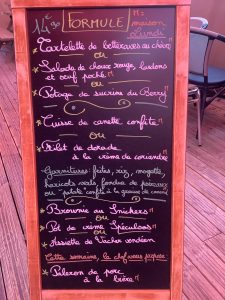 14€90 FORMULE M = maison
Lundi
Tartelette de betteraves au chèvre
ou
Salade de choux rouge, lardons
et oeuf poché M
ou
Potage de sucrine du Berry
Cuisse de canette confite
ou
Filet de dorade
à la crème de coriandre
Garnitures: frites, riz, mogette,
haricots verts, fondue de poireaux
ou "patate" confite à la graisse de canard
Brownie au Snickers M
ou
Pot de crème Spéculoos M
ou
Assiette de Vacher vendéen
Cette semaine, le chef vous propose
Paleron de porc
à la bière M